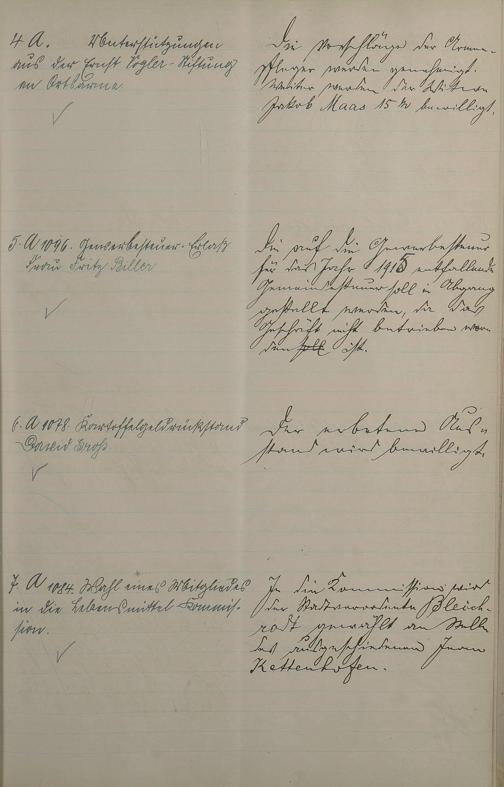 4 A. Unterstützungen
aus der Ernst Vogler-Stiftung
an Ortsarme
Die Vorschläge der Armen-
pfleger werden genehmigt.
Weiter werden der Witwe
Jakob Maas 15 M bewilligt.
5. A 1096. Gewerbesteuer-Erlaß
Frau Fritz Biller
Die auf die Gewerbesteuer
für das Jahr 1915 entfallende
Gemeindesteuer soll in Abgang
gestellt werden, da das
Geschäft nicht betrieben wor-
den soll ist.
6. A 1078. Kartoffelgeldrückstand
David Groß
Der erbetene Aus-
stand wird bewilligt.
7. A 1084. Wahl eines Mitgliedes
in die Lebensmittel-Kommis-
sion.
In die Kommission wird
der Stadtverordnete Bleich-
rodt gewählt an Stelle
des ausgeschiedenen Franz
Kettenhofen.